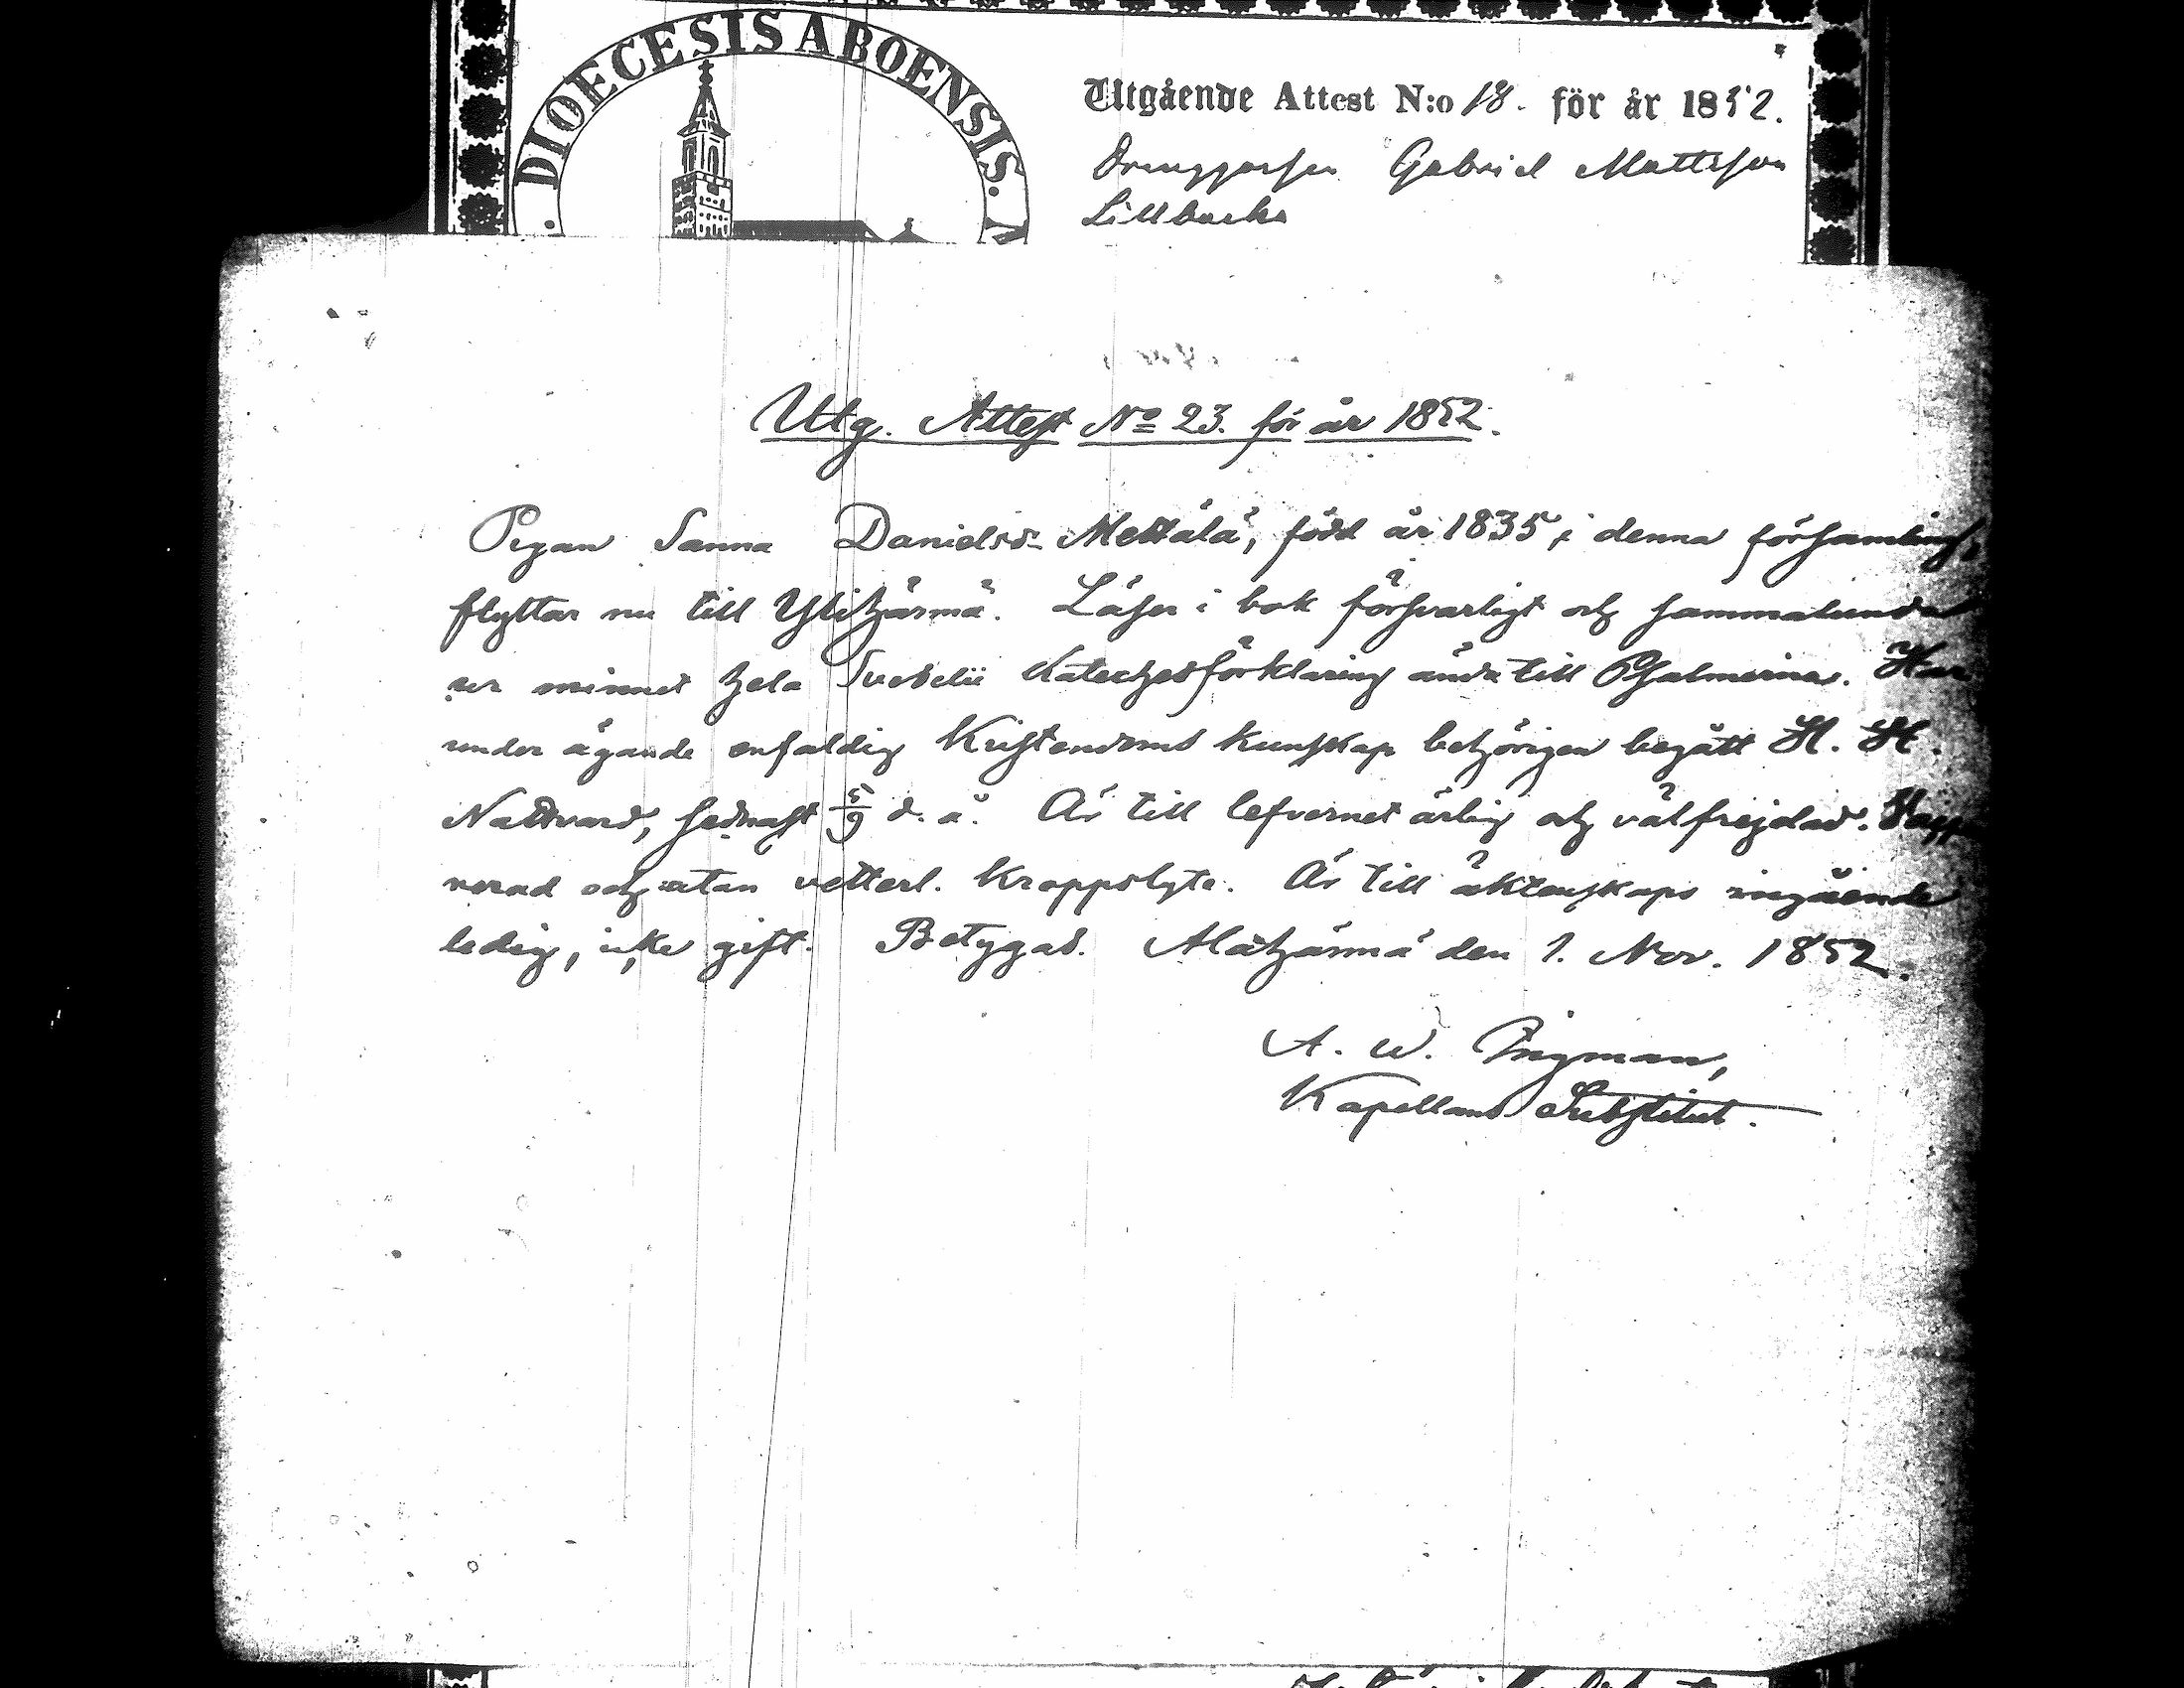 DIOECESIS ABOENSIS.
Utgående Attest N:o 18. för år 1852.
Drenggossen Gabriel Mattsson
Lillbacka
Utg. Attest No 23. för år 1852.
Pigan Sanna Danielsd. Mettälä, född år 1835 i denna församling,
flyttar nu till Ylihärmä. Läser i bok försvarligt och sammalunda
ur minnet hela Svebelii Katechesförklaring ända till Psalmerna. Har
under ägande enfaldig Kristendoms kunskap behörigen begått H. H.
Nattvard, sednast 5/9 d. å. Är till lefvernet ärlig och välfrejdad. Vacci
nerad och utan vetterl. Kroppslyte. Är till äktenskaps ingående
ledig, icke gift. Betygas. Alahärmä den 1. Nov. 1852.
A. W. Ingman,
Kapellans Substitut.